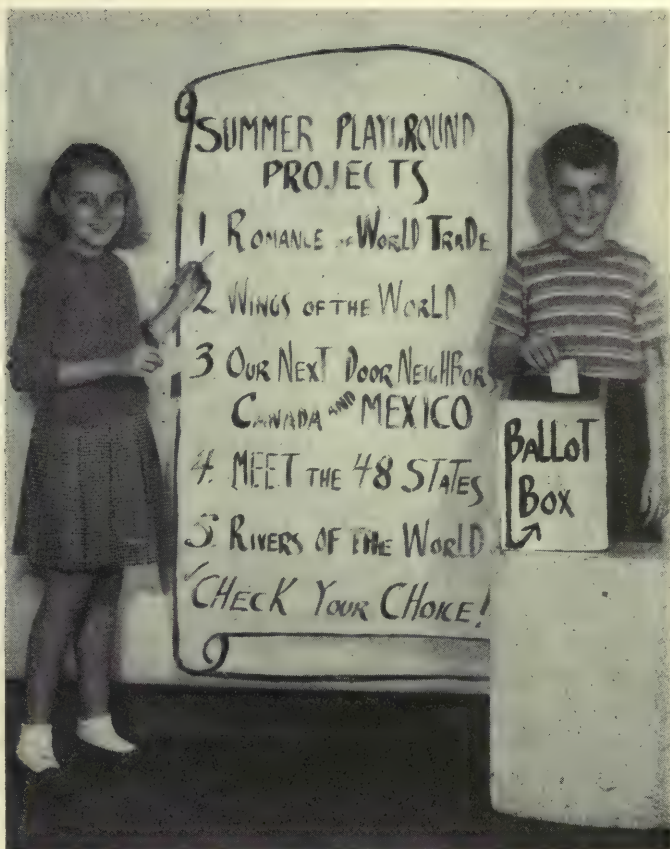 SUMMER PLAYGROUND
PROJECTS
1 ROMANCE OF WORLD TRADE
2 WINGS OF THE WORLD
3 OUR NEXT DOOR NEIGHBORS
CANADA AND MEXICO
4. MEET THE 48 STATES
5. RIVERS OF THE WORLD
✓CHECK YOUR CHOICE!
BALLOT
BOX